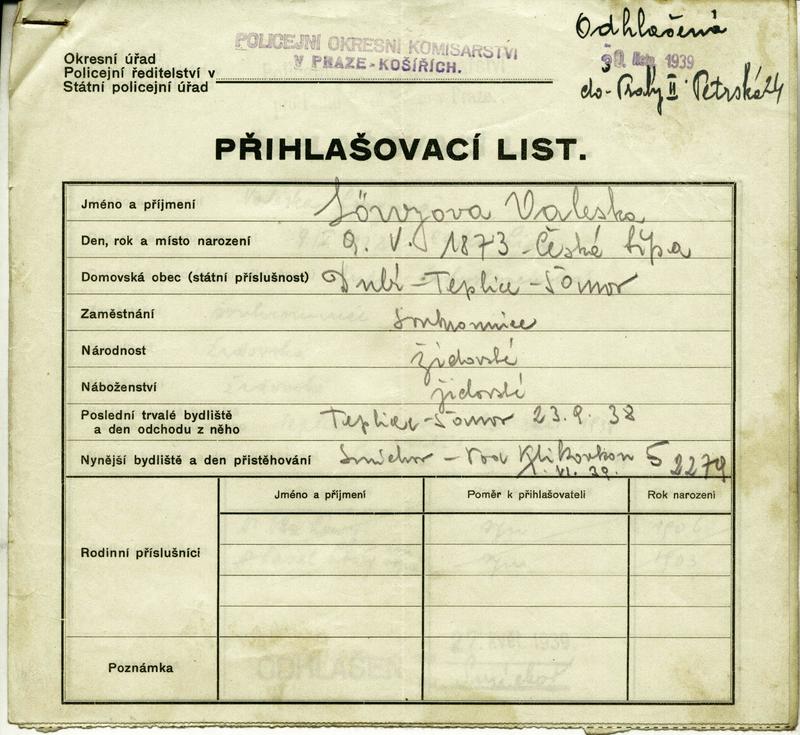 Okresní úřad
Policejní ředitelství v
Státní policejní úřad
POLICEJNÍ OKRESNÍ KOMISARSTVÍ
V PRAZE-KOŠÍŘÍCH.
Odhlašená
30. listp. 1939
do Prahy II Petrská 24
PŘIHLAŠOVACÍ LIST.
Jméno a příjmení Valeska
Den, rok a místo narození 9. V. 1873 - Česká Lípa
Domovská obec (státní příslušnost) Dubí - Teplice - Šanov
Zaměstnání soukromnice
Národnost židovské
Náboženství židovské
Poslední trvalé bydliště
a den odchodu z něho Teplice - Šanov 23.9.38
Nynější bydliště a den přistěhování Smíchov - Nad Klikovkou 5 2279
1. VI. 39.
Jméno a příjmení Poměr k přihlašovateli Rok narozeni
Rodinní příslušníci
Poznámka